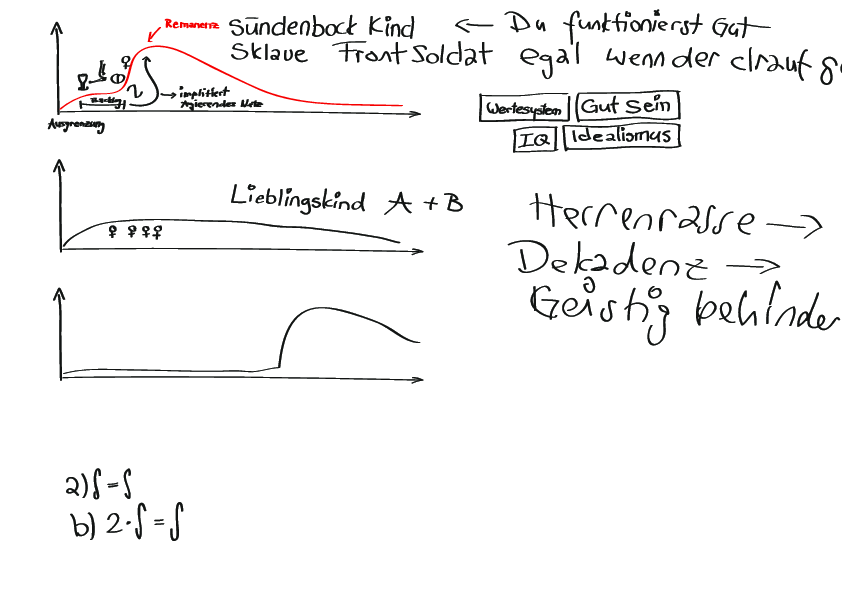 Remanenz
Sündenbock Kind ← Du funktionierst Gut
Sklave FrontSoldat egal wenn der drauf
→ implitiert
Agierendes
Ausgrenzung
Wertesystem
Gut sein
IQ
Idealismus
Lieblingskind A + B
Herrenrasse →
Dekadenz →
Geistig behinder
a) ∫ = ∫
b) 2·∫ = ∫